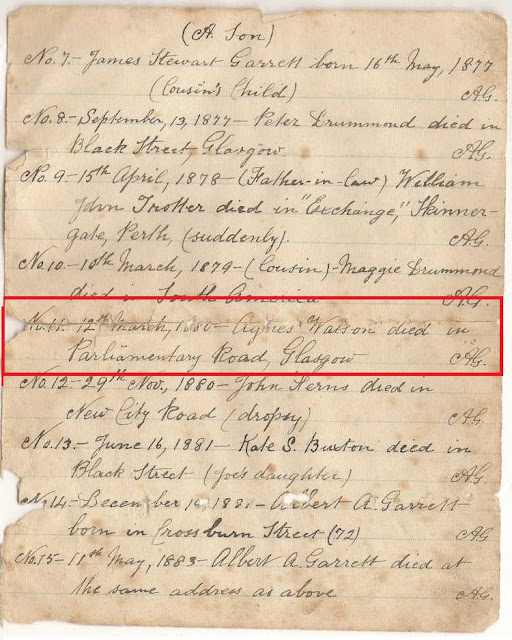 (A. Son)
No. 7.- James Stewart Garrett born 16th May, 1877
(Cousin's Child) A.G.
No. 8- September, 13, 1877- Peter Drummond died in
Black Street, Glasgow. A.G.
No. 9- 15th April, 1878- (Father-in-law) William
John Trotter died in "Exchange," Skinner-
gate, Perth, (suddenly). A.G.
No. 10- 10th March, 1879- (Cousin)- Maggie Drummond
died in South America A.G.
No. 11- 12th March, 1880- Agnes Watson died in
Parliamentary Road, Glasgow A.G.
No. 12- 29th Nov., 1880- John Kerns died in
New City Road (dropsy) A.G.
No. 13.- June 16, 1881- Kate S. Buxton died in
Black Street (Joe's daughter) A.G.
No 14- December 1881- Albert A. Garrett
born in Grossburn Street (72) A.G
No. 15- 11th May, 1883- Albert A. Garrett died at
the same address as above A.G.